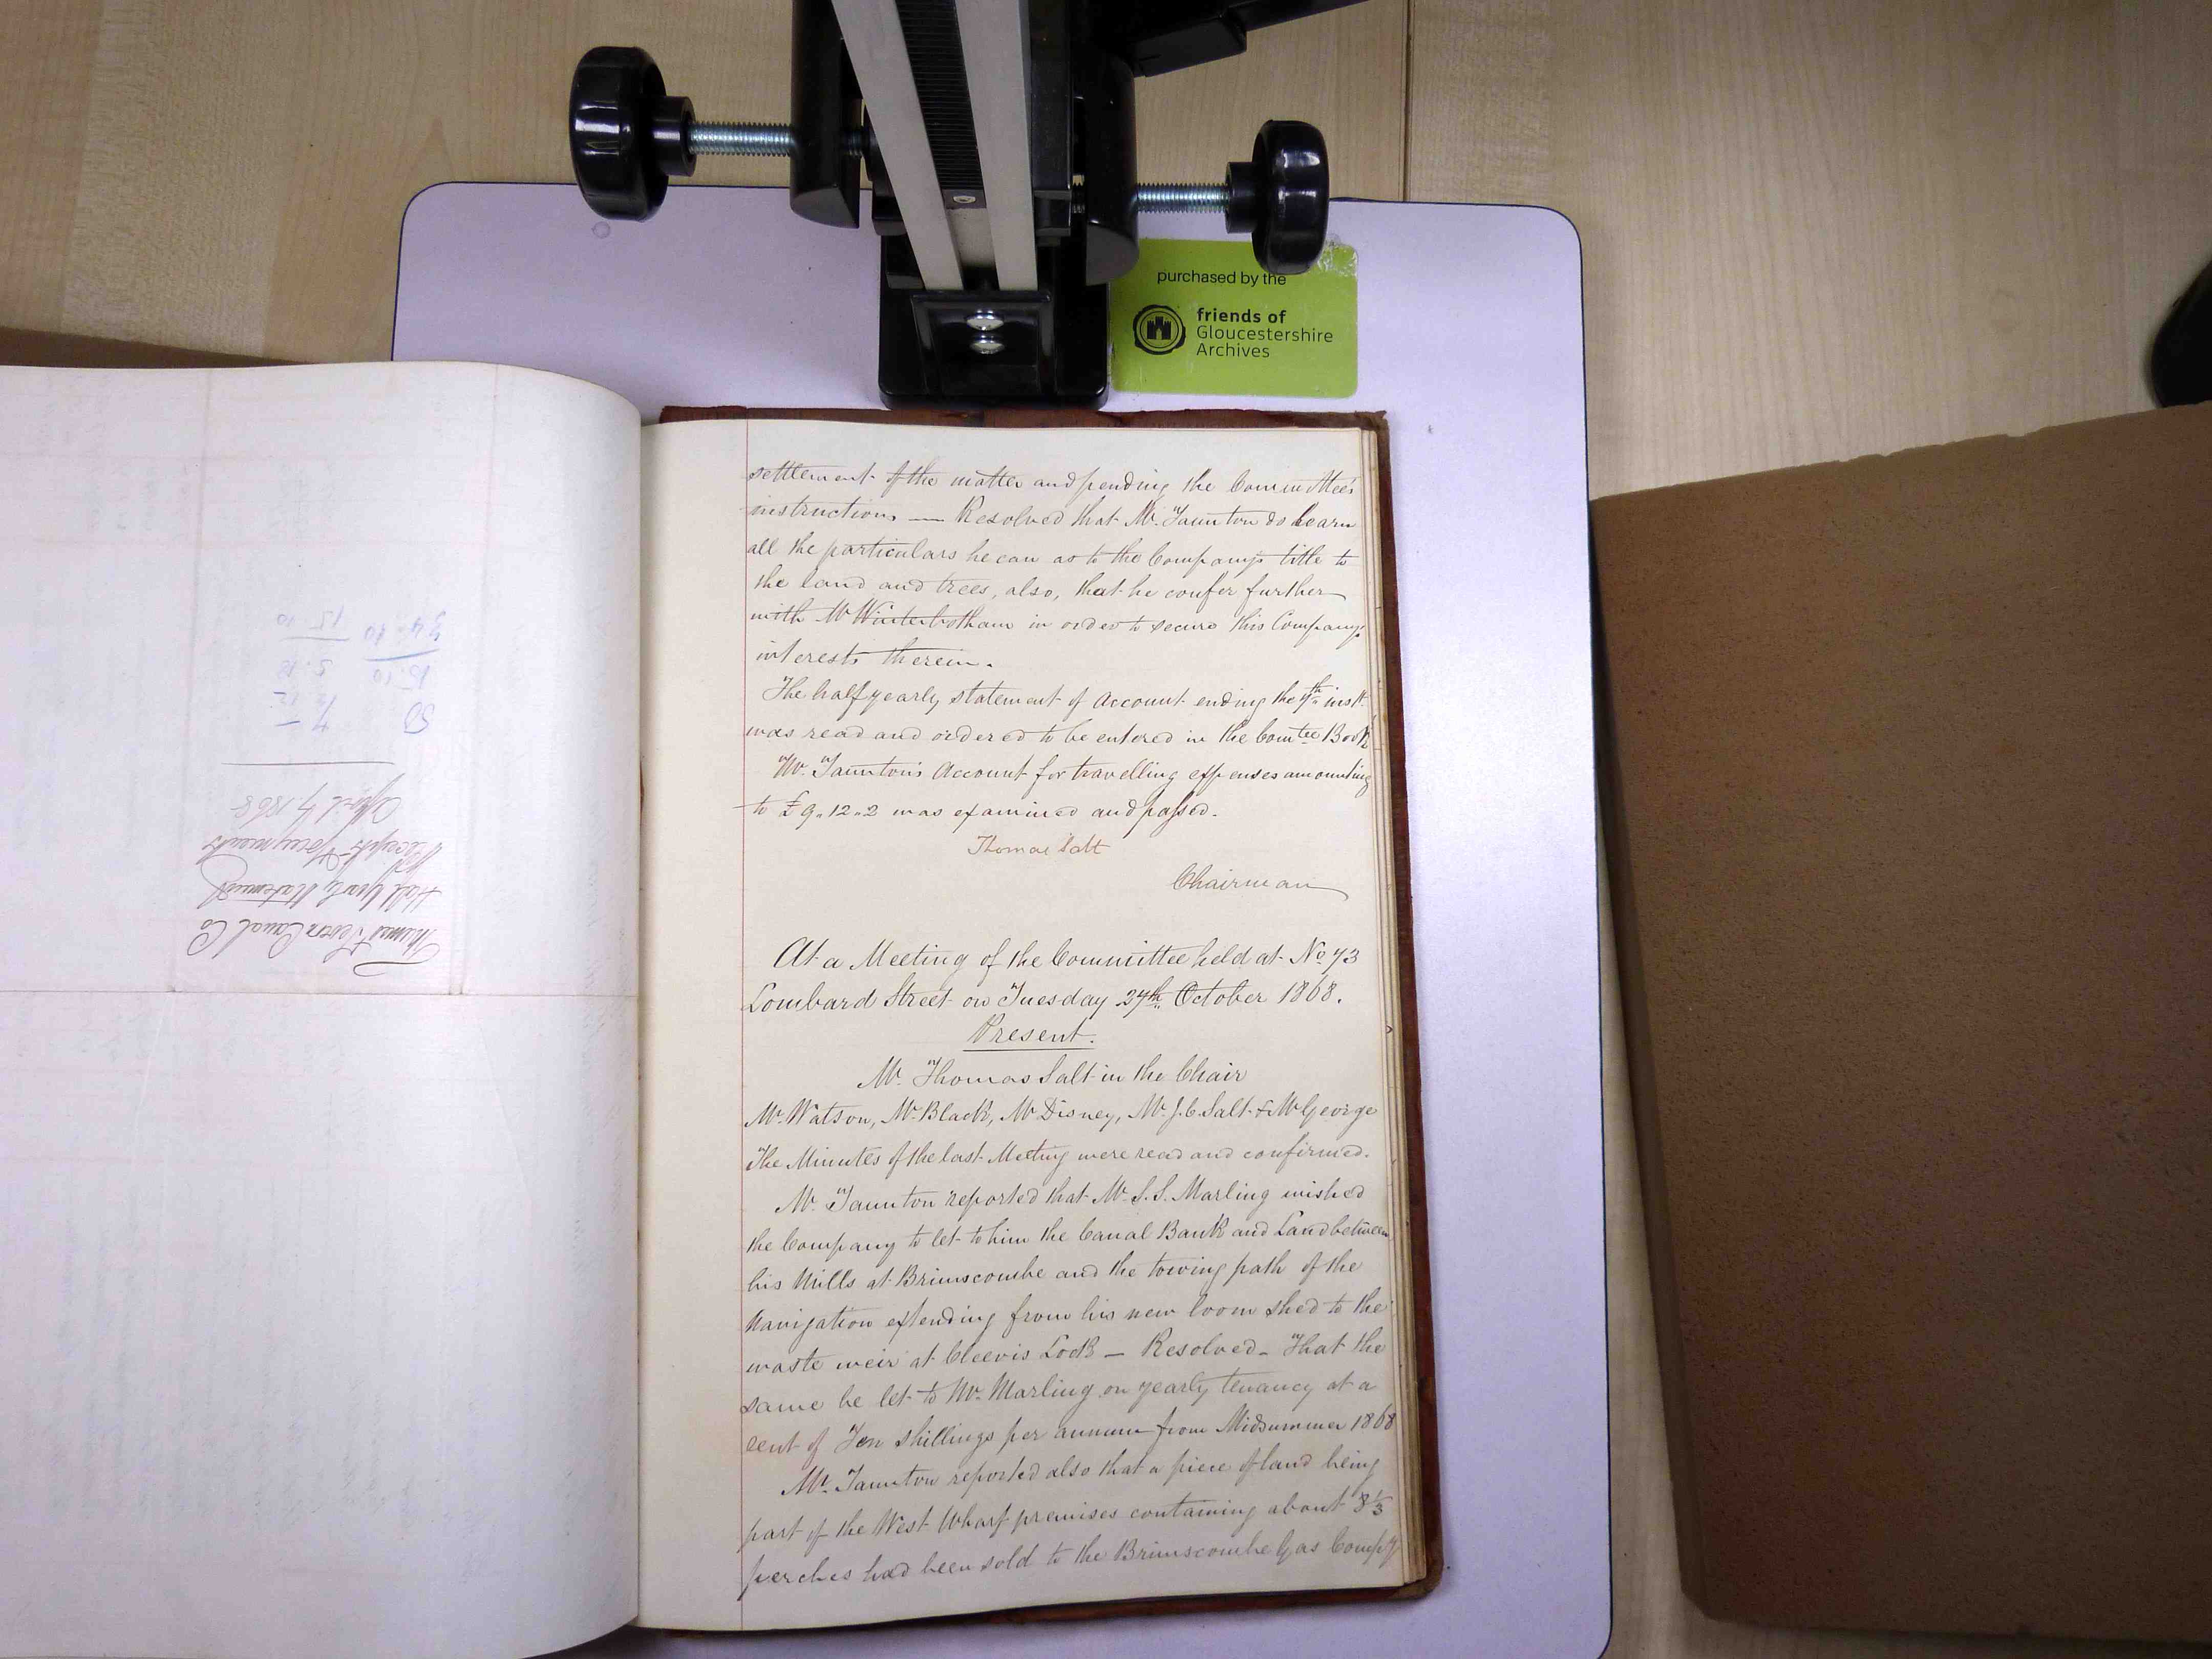 purchased by the
friends of
Gloucestershire
Archives
settlement of the matter and pending the Committee's
instructions — Resolved that Mr. Taunton do learn
all the particulars he can as to the Company's title to
the land and trees, also, that he confer further
with Mr Winterbotham in order to secure this Company's
interests therein.
The half yearly statement of Account ending the 7th inst
was read and ordered to be entered in the Comtee Book
Mr. Taunton's Account for travelling expenses amounting
to £9.12.2 was examined and passed.
Thomas Salt
Chairman
At a Meeting of the Committee held at No 73
Lombard Street on Tuesday 27th October 1868.
Present.
Mr. Thomas Salt in the Chair
Mr. Watson, Mr. Black, Mr Disney, Mr. J. C. Salt & Mr George
The Minutes of the last Meeting were read and confirmed.
Mr. Taunton reported that Mr. S. S. Marling wished
the Company to let to him the Canal Bank and Land between
his Mills at Brimscombe and the towing path of the
Navigation extending from his new loom shed to the
waste weir at Cleevis Lock — Resolved - That the
same be let to Mr. Marling on yearly tenancy at a
rent of Ten shillings per annum from Midsummer 1868
Mr. Taunton reported also that a piece of land being
part of the West Wharf premises containing about 8 1/3
perches had been sold to the Brimscombe Gas Compy
Thames & Severn Canal Co
Half Yearly Statement
Receipts & Payments
April 7, 1868